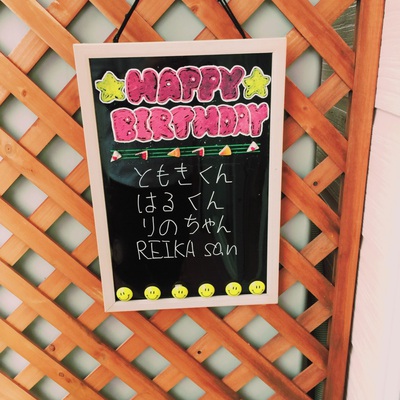 HAPPY
BIRTHDAY
ともきくん
はるくん
りのちゃん
REIKA san